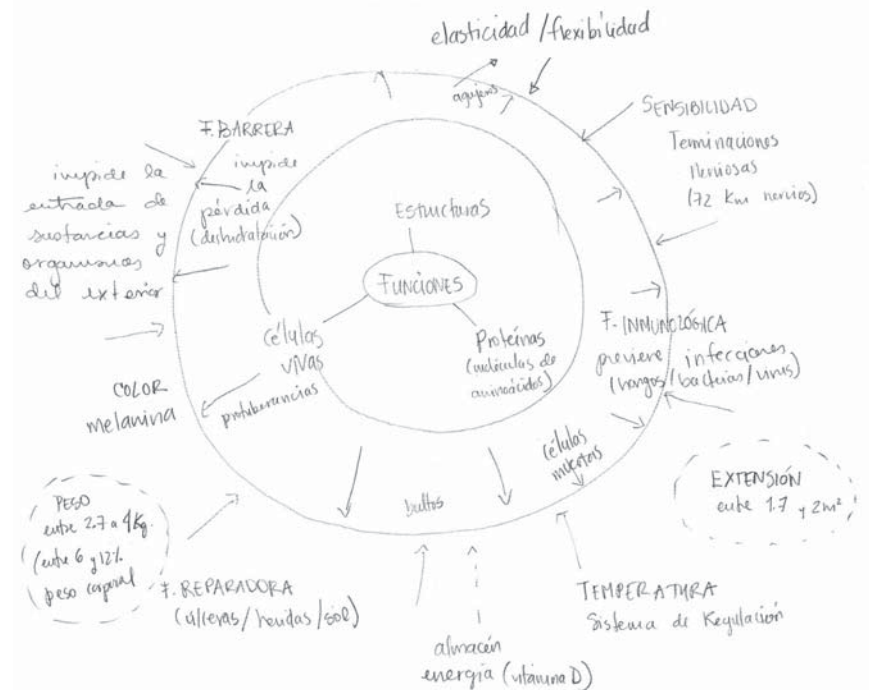 elasticidad / flexibilidad
agujeros
SENSIBILIDAD
Terminaciones
nerviosas
(72 Km nervios)
F. BARRERA
impide
la
pérdida
(deshidratación)
impide la
entrada de
sustancias y
organismos
del exterior
Estructuras
FUNCIONES
Células
vivas
Proteínas
(moléculas de
aminoácidos)
F. INMUNOLÓGICA
previene infecciones
(hongos/bacterias/virus)
COLOR
melanina
protuberancias
células
muertas
bultos
EXTENSIÓN
entre 1.7 y 2m²
PESO
entre 2.7 a 4Kg.
(entre 6 y 12%
peso corporal
F. REPARADORA
(úlceras/heridas/sol)
TEMPERATURA
Sistema de Regulación
almacén
energía (vitamina D)